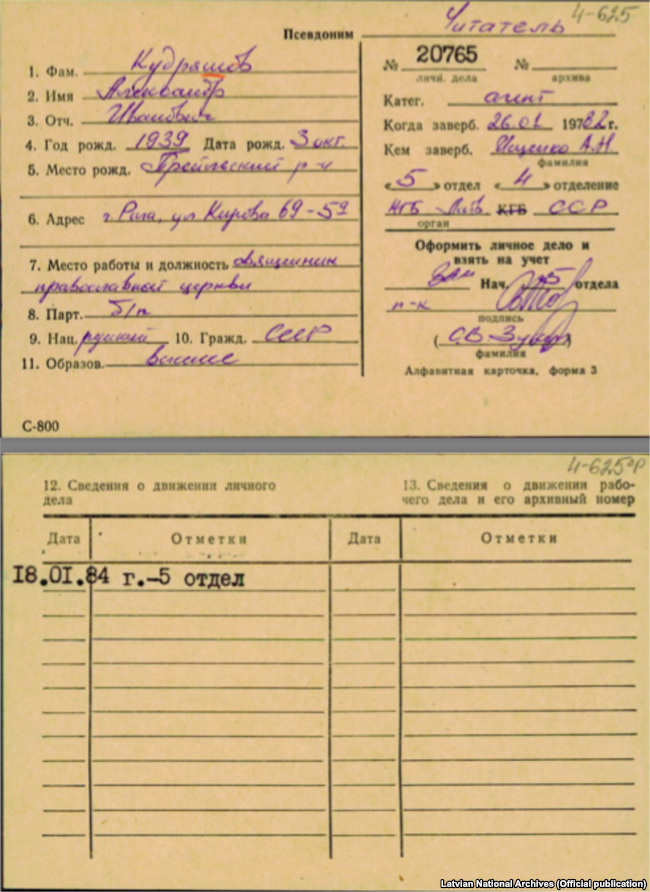 4-625
Псевдоним Читатель
1. Фам. Кудряшов
2. Имя Александр
3. Отч. Иванович
4. Год рожд. 1939 Дата рожд. 3 окт.
5. Место рожд. Прейльский р-н
6. Адрес г. Рига, ул Кирова 69-59
7. Место работы и должность священник
православной церкви
8. Парт. б/п
9. Нац. русский 10. Гражд. СССР
11. Образов. высшее
С-800
№ 20765 №
личн. дела архива
Катег. агент
Когда заверб. 26.01 197 82 г.
Кем заверб. Ищенко А.Н.
фамилия
« 5 » отдел « 4 » отделение
КГБ Латв КГБ ССР
орган
Оформить личное дело и
взять на учет
Зам Нач. 5 отдела
п-к
подпись
(С.В.)
фамилия
Алфавитная карточка, форма 3
4-625 ор
12. Сведения о движении личного
дела
13. Сведения о движении рабо-
чего дела и его архивный номер
Дата Отметки Дата Отметки
18.01.84 г.-5 отдел
Latvian National Archives (Official publication)